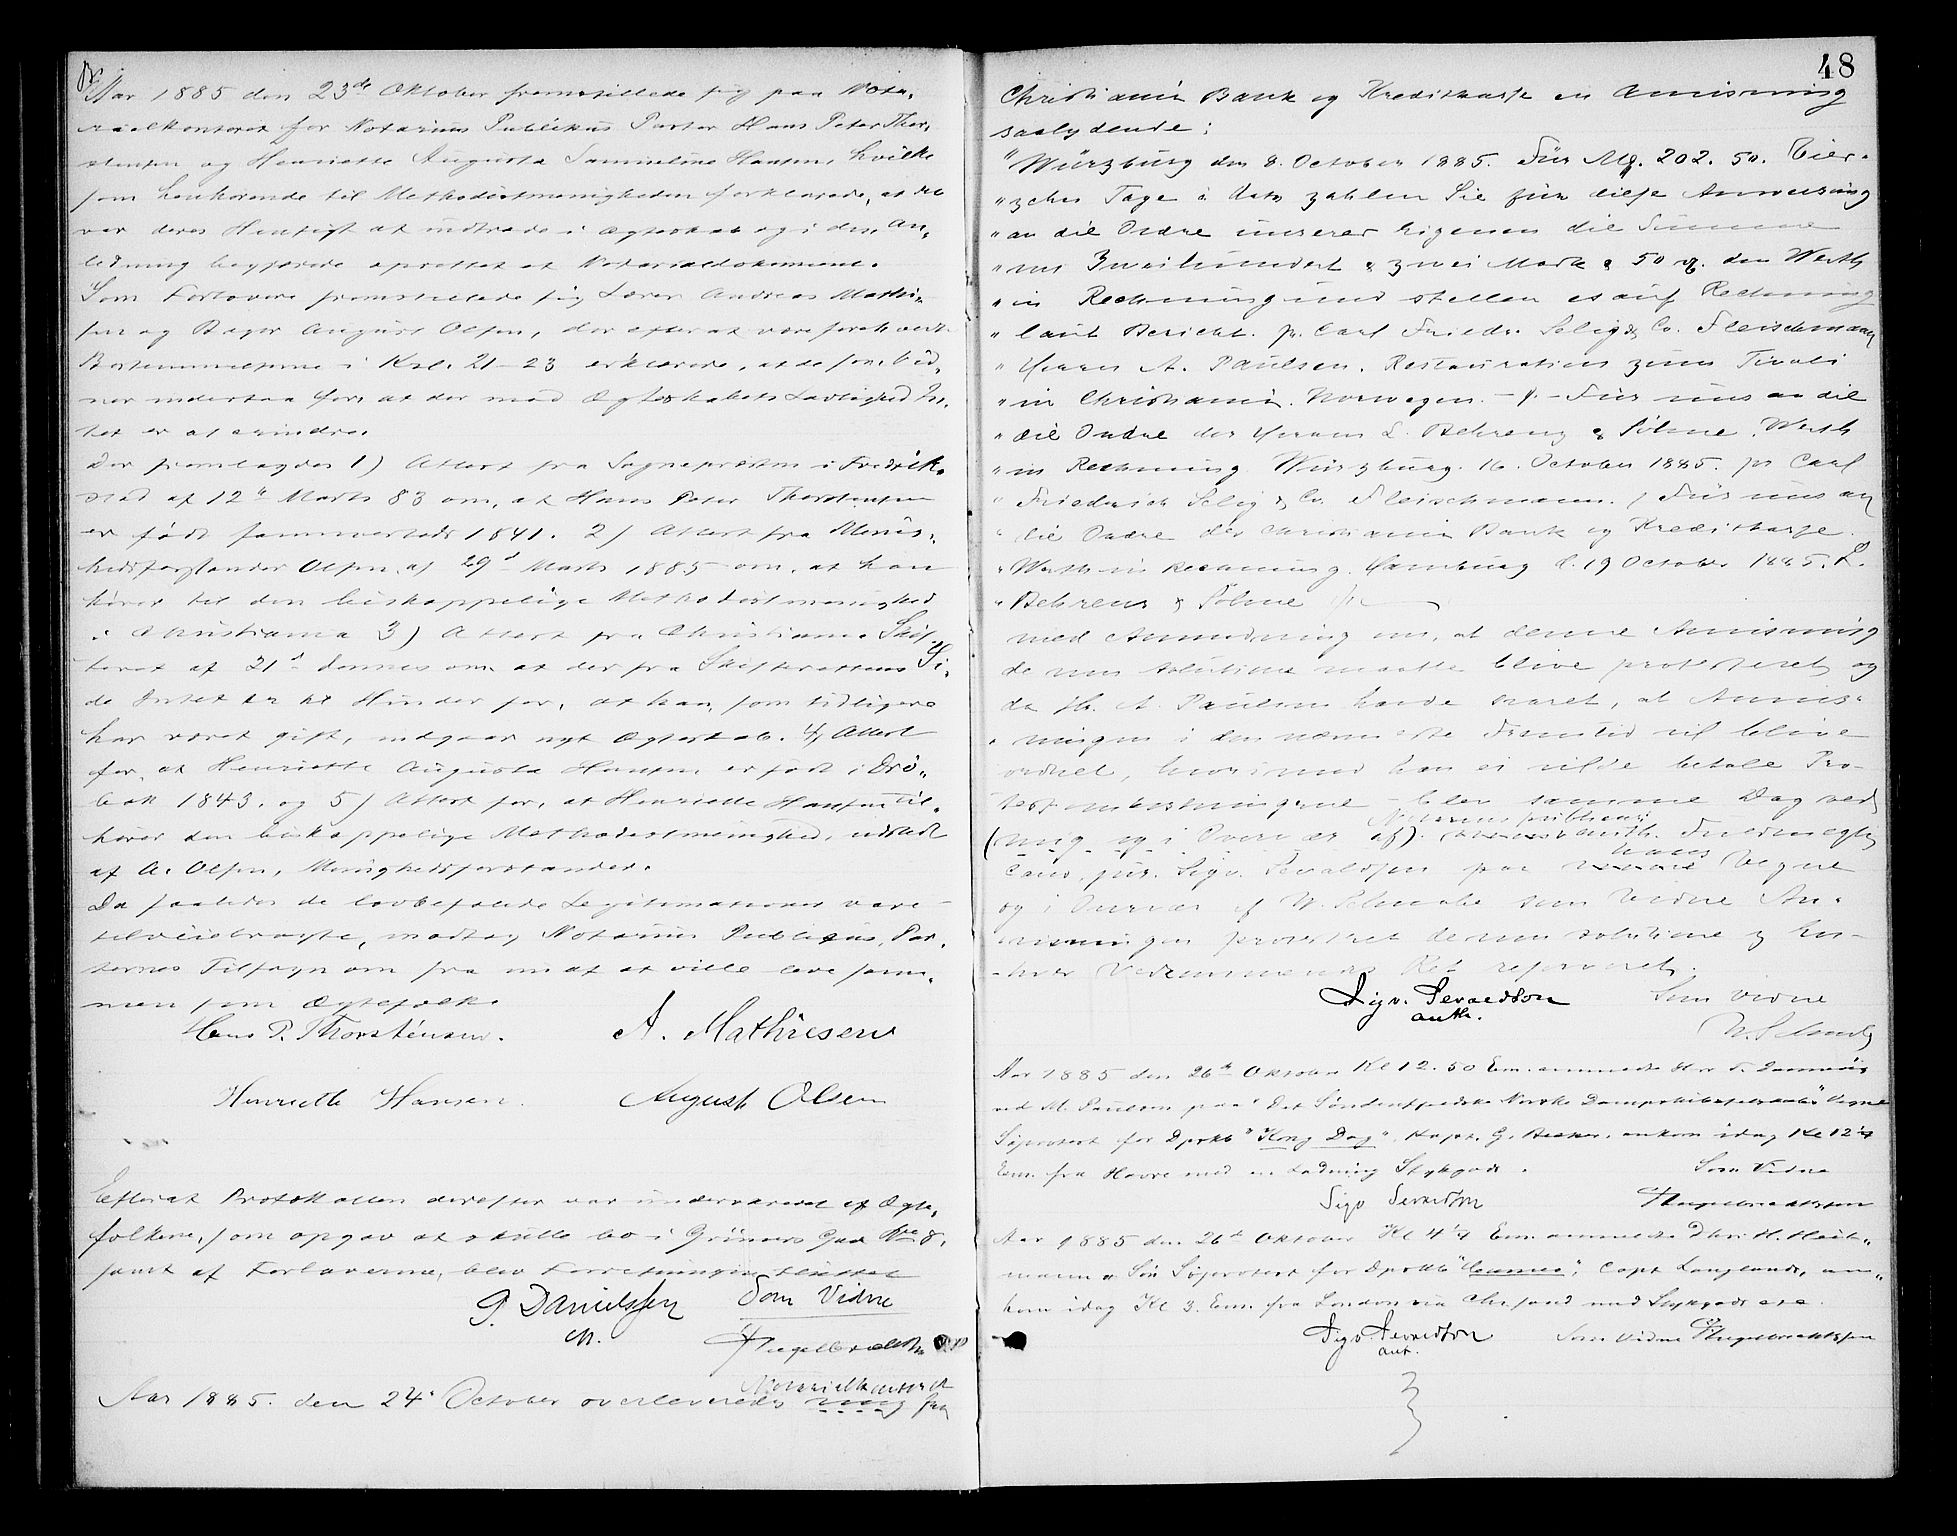 Aar 1885 den 23de Oktober fremstillede sig paa Nota,
rialkontoret for Notarius Publikus Parter Hans Peter Thor,
stensen og Henriette Augusta Samueline Hansen, hvilke
som henhørende til Methodistmenigheden forklarede, at det
var deres Hensigt at indtræde i Ægteskab og i den An,
ledning begjærede oprettet et Notarialdokument.
Som Forlovere fremstillede sig Lærer Andreas Mathi,
sen og Bager August Olsen, der efter at være foreholdt
Bestemmelserne i Krl. 21-23 erklærede, at de som Vid,
ner indestaa for, at der mod Ægteskabets Lovlighed In,
tet er at erindre.
Der fremlagdes 1) Attest fra Sognepræsten i Fredrik,
stad af 12te Marts 83 om, at Hans Peter Thorstensen
er født sammesteds 1841. 2) Attest fra Menig,
hedsforstander Olsen af 29d Marts 1885 om, at han
hører til den biskoppelige Methodistmenighed
i Christiania 3) Attest fra Christiania Skif,
teret af 21d dennes om at der fra Skifterettens Si,
de Intet er til Hinder for, at han, som tidligere
har været gift, indgaar nyt Ægteskab. 4) Attest
for, at Henriette Augusta Hansen er født i Drø,
bak 1843. og 5) Attest for, at Henriette Hansen til,
hører den biskoppelige Methodistmenighed, udstedt
af A. Olsen, Menighedsforstander.
Da saaledes de lovbefalede Legitimationer vare
tilveiebragte, modtog Notarius Publicus, Par,
ternes Tilsagn om fra nu af at ville leve sam,
men som Ægtefolk.
Hans P. Thorstensen. A. Mathiesen
Henriette Hansen. August Olsen
Efterat Protokollen derefter var underskrevet af Ægte,
folkene, som opgav at skulle bo i Grüners Gade No 8,
samt af Forloverne, blev Forretningen sluttet
P. Danielssen Som Vidne
cst.
H Engelbrektsen
Notarialkontoret
Aar 1885. den 24' October overleveredes mig fra
48
Christiania Bank og Kreditkasse en Anvisning
saalydende:
"Würzburg den 8. October 1885. Für Mk. 202. 50. Vier-
" zehn Tage à dato zahlen Sie für diese Anweisung
" an die Ordre unserer Eigenen die Summe
" von Zweihundert & zwei Mark & 50 pf. den Werth
" in Rechnung und stellen es auf Rechnung
" laut Bericht. pr. Carl Friedr. Selig & Co. Fleischmann
" Herrn A. Paulsen. Restauration zum Tivoli
" in Christiania. Norwegen. - /. - Für uns an die
" die Ordre der Herren L. Behrens & Söhne. Werth
" in Rechnung Würzburg. 16. October 1885. pr Carl
" Friedrich Selig & Co. Fleischmann. / Für uns an
" die Ordre der Christiania Bank og Kreditkasse.
" Werth in Rechnung. Hamburg d. 19 October 1885. L.
" Behrens & Söhne
med Anmodning om, at denne Anvisning
de non solutione maatte blive protesteret, og
da Hr. A. Paulsen havde svaret, at Anvis-
ningen i den nærmeste Fremtid vil blive
ordnet, hvorimod han ei vilde betale Pro-
testomkostningerne - blev samme Dag ved
Notarius publicus'
(mig og i Overvær af). auth. Fuldmægtig
hans
Cand. jur. Sigv. Sevaldsen paa Vegne
og i Overvær af N. Schwabe som Vidne An-
visningen protesteret de non solutione og En-
hver Vedkommende Ret reserveret.
Sigv. Sevaldson Som Vidne
auth.
Aar 1885 den 26d Oktober Kl 12.50 Em. anmeldte
ved M. Paulsen paa "Det Søndenfjeldske Norske Dampskibsselskab's" Vegne
Søprotest for Dpskb "Kong Dag", Kapt. G. Becker, ankom idag Kl 12 1/4
Em. fra Havre med en Ladning Stykgods. Som Vidne
Sigv Sevaldson H Engelbrektsen
Aar 1885 den 26d Oktober Kl 4 1/4 Em. anmeldte Dhrr. H. Heit-
mann & Søn Søprotest for Dpskb "Cameo", Capt Langlands, an-
kom idag Kl 3. Em. fra London via Chrsand med Stykgods
Sigv Sevaldson Som Vidne H Engelbrektsen
aut.